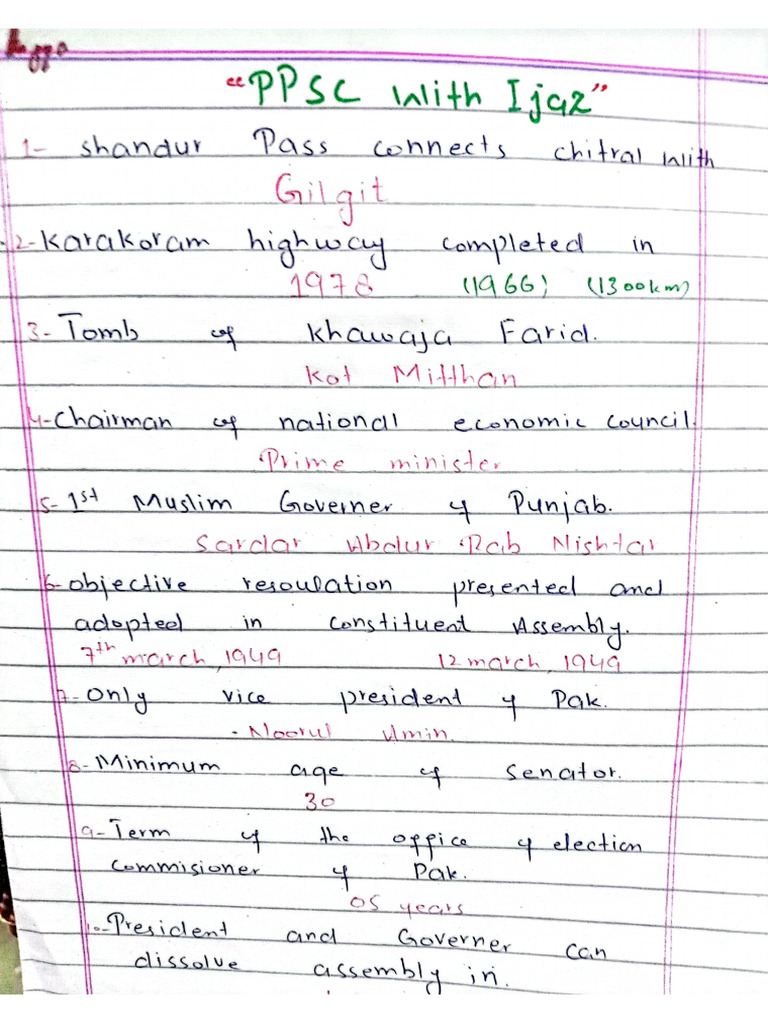 "PPSC With Ijaz"
1- shandur Pass connects chitral with
Gilgit
2- Karakoram highway completed in
1978 (1966) (1300km)
3- Tomb of Khawaja Farid.
Kot Mitthan
4- Chairman of national economic council.
Prime minister
5- 1st Muslim Governer of Punjab.
Sardar Abdur Rab Nishtar
6- objective resoulation presented and
adopted in constituent Assembly.
7th march, 1949 12 march, 1949
7- only vice president of Pak.
Noorul Amin.
8- Minimum age of senator.
30
9- Term of the office of election
commisioner of Pak.
05 years
10- President and Governer can
dissolve assembly in.